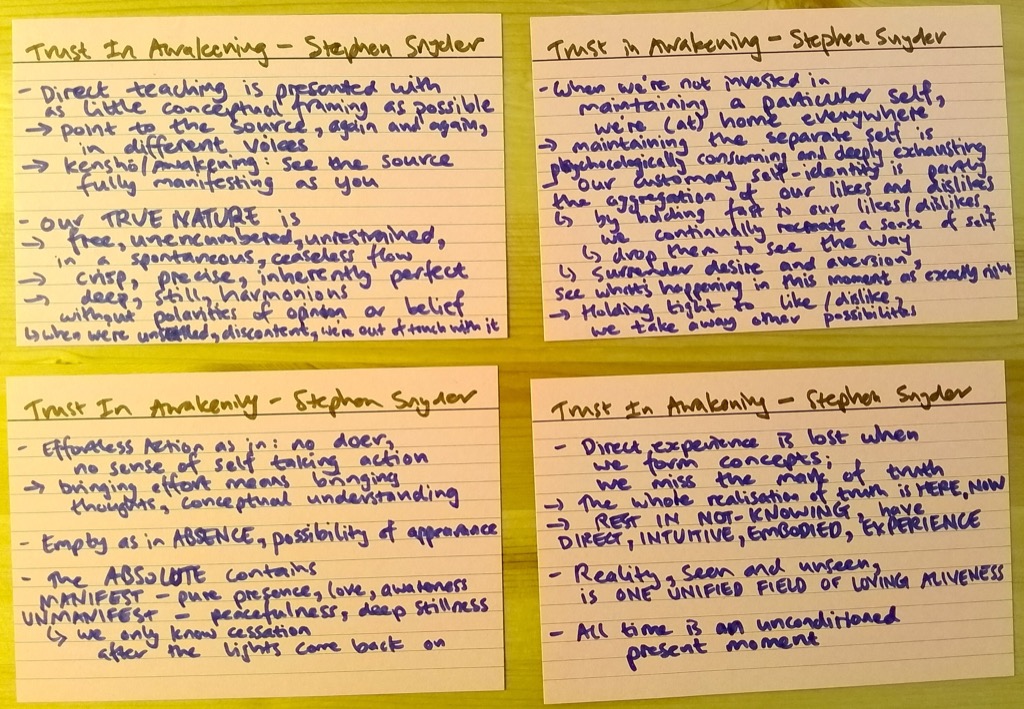 Trust In Awakening - Stephen Snyder
- Direct teaching is presented with
as little conceptual framing as possible
→ point to the source, again and again,
in different voices
→ kenshō/Awakening: see the source
fully manifesting as you
- Our TRUE NATURE is
→ free, unencumbered, unrestrained,
in a spontaneous, ceaseless flow
→ crisp, precise, inherently perfect
→ deep, still, harmonious
without polarities of opinion or belief
↳ when we're unsettled, discontent, we're out of touch with it
Trust in Awakening - Stephen Snyder
- When we're not invested in
maintaining a particular self,
we're (at) home everywhere
→ maintaining the separate self is
psychologically consuming and deeply exhausting
→ Our customary self-identity is partly
the aggregation of our likes and dislikes
↳ by holding fast to our likes/dislikes,
we continually recreate a sense of self
↳ drop them to see the way
↳ Surrender desire and aversion,
see what's happening in this moment as exactly right
→ Holding tight to like/dislike,
we take away other possibilities
Trust In Awakening - Stephen Snyder
- Effortless Action as in: no doer,
no sense of self taking action
→ bringing effort means bringing
thoughts, conceptual understanding
- Empty as in ABSENCE, possibility of appearance
- The ABSOLUTE contains
MANIFEST - pure presence, love, awareness
UNMANIFEST - peacefulness, deep stillness
↳ we only know cessation
after the lights come back on
Trust In Awakening - Stephen Snyder
- Direct experience is lost when
we form concepts;
we miss the mark of truth
→ The whole realisation of truth is HERE, NOW
→ REST IN NOT-KNOWING, have
DIRECT, INTUITIVE, EMBODIED, EXPERIENCE
- Reality, seen and unseen,
is ONE UNIFIED FIELD OF LOVING ALIVENESS
- All time is an unconditioned
present moment